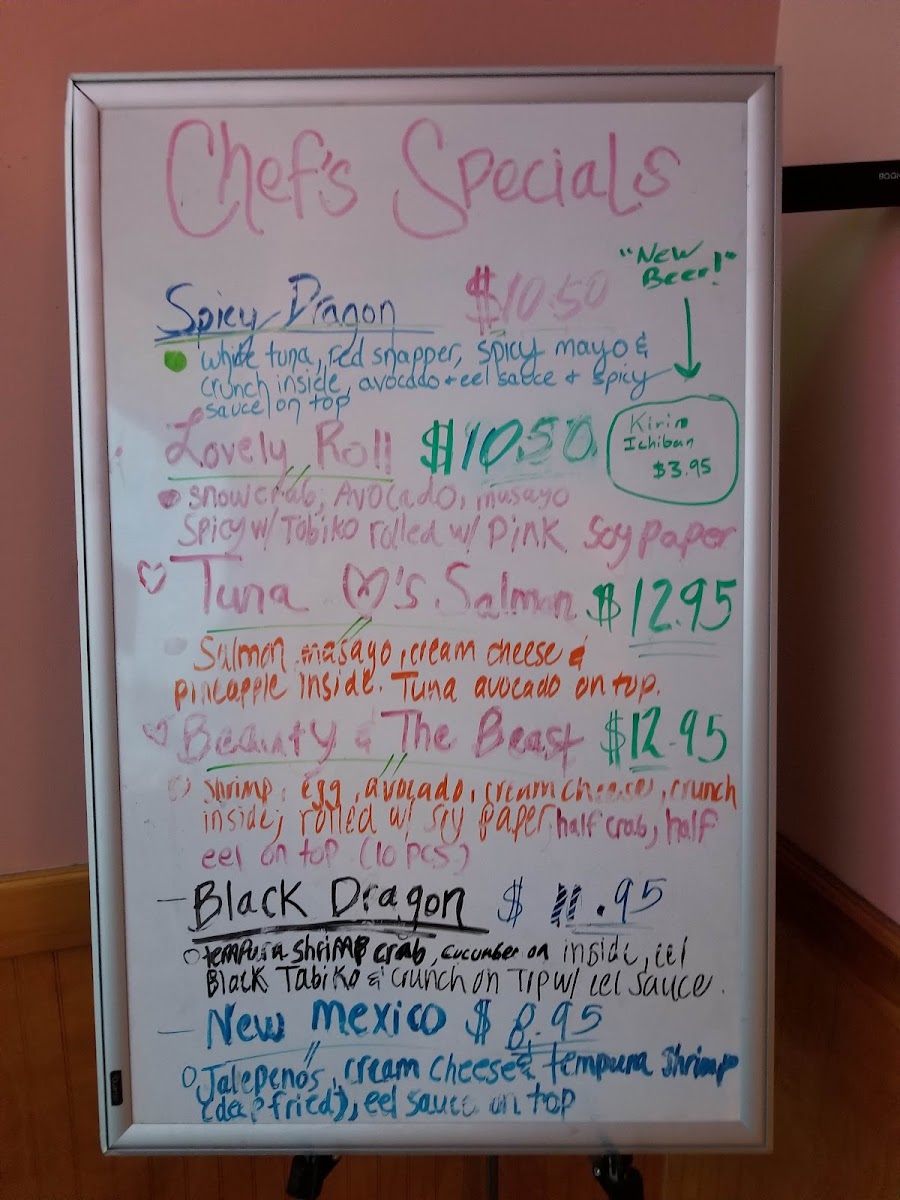 Chef's Specials
"New
Beer!"
Spicy Dragon $10.50
white tuna, red snapper, spicy mayo &
crunch inside, avocado + eel sauce + spicy
sauce on top
Kirin
Ichiban
$3.95
Lovely Roll $10.50
snowcrab, Avocado, masayo
Spicy w/ Tobiko rolled w/ Pink Soy paper
Tuna ♡'s Salmon $12.95
Salmon masayo, cream cheese &
pineapple inside. Tuna avocado on top.
Beauty & The Beast $12.95
shrimp, egg, avocado, cream cheese, crunch
inside, rolled w/ soy paper, half crab, half
eel on top (10 pcs)
- Black Dragon $11.95
tempura shrimp crab, cucumber on inside, eel
Black Tabiko & crunch on Top w/ eel sauce.
- New Mexico $8.95
Jalepenos, cream cheese & tempura shrimp
(deep fried), eel sauce on top